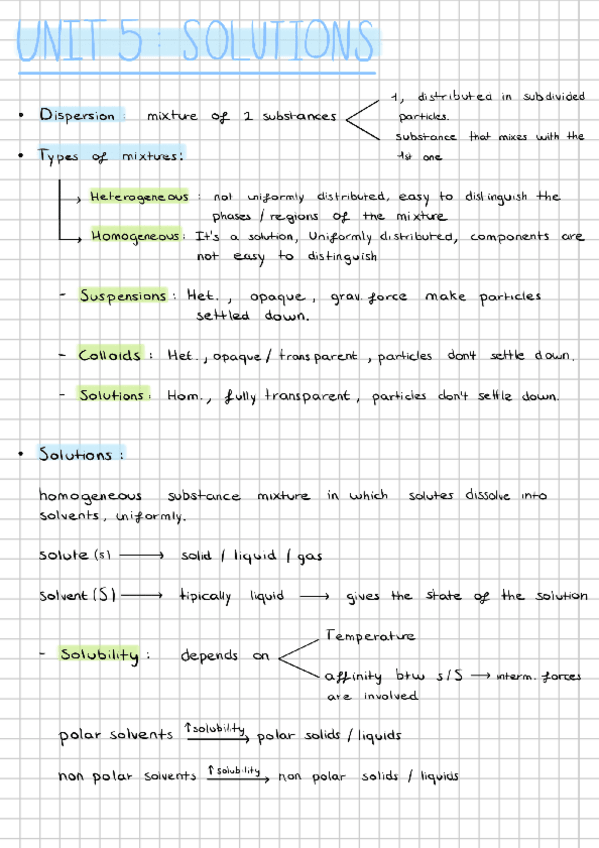 UNIT 5 : SOLUTIONS
1, distributed in subdivided
• Dispersion : mixture of 2 substances
particles.
substance that mixes with the
• Types of mixtures:
1st one
Heterogeneous : not uniformly distributed, easy to distinguish the
phases / regions of the mixture
Homogeneous : It's a solution, Uniformly distributed, components are
not easy to distinguish
- Suspensions : Het. , opaque , grav. force make particles
settled down.
- Colloids : Het. , opaque / transparent , particles don't settle down.
- Solutions : Hom. , fully transparent , particles don't settle down.
• Solutions :
homogeneous substance mixture in which solutes dissolve into
solvents, uniformly.
solute (s) → solid / liquid / gas
solvent (S) → tipically liquid → gives the state of the solution
Temperature
- Solubility : depends on
affinity btw s/S → interm. forces
are involved
polar solvents ↑solubility → polar solids / liquids
non polar solvents ↑solubility → non polar solids / liquids